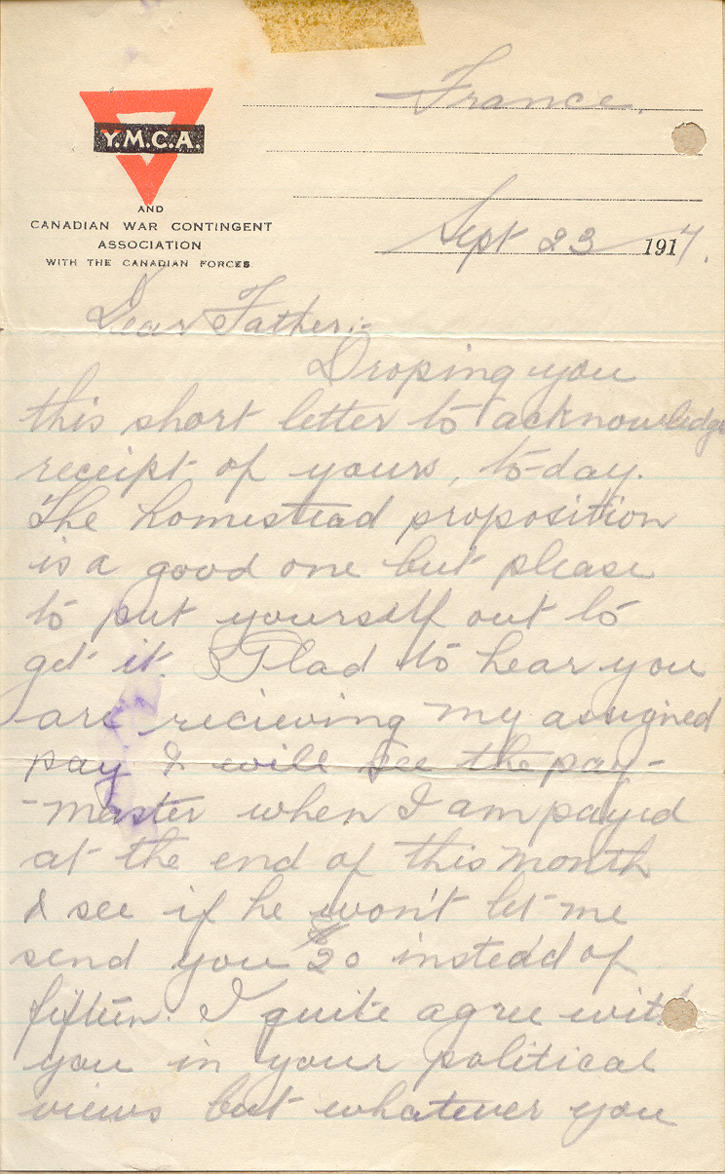 France.
Y.M.C.A.
AND
CANADIAN WAR CONTINGENT
ASSOCIATION
WITH THE CANADIAN FORCES
Sept 23 1917.
Dear Father:-
Droping you
this short letter to acknowledge
receipt of yours, to-day.
The homestead proposition
is a good one but please
to put yourself out to
get it. Glad to hear you
are recieving my assigned
pay & will see the pay-
-master when I am payed
at the end of this month
& see if he won't let me
send you $20 instead of
fifteen. I quite agree with
you in your political
views but whatever you